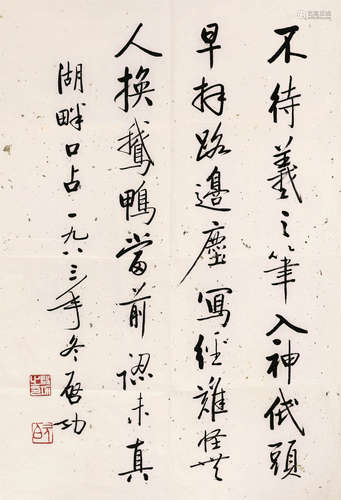 不待羲之筆入神低頭
早拜路邊塵寫經難怪無
人換鵝鴨當前認未真
湖畔口占一九八三年冬啟功